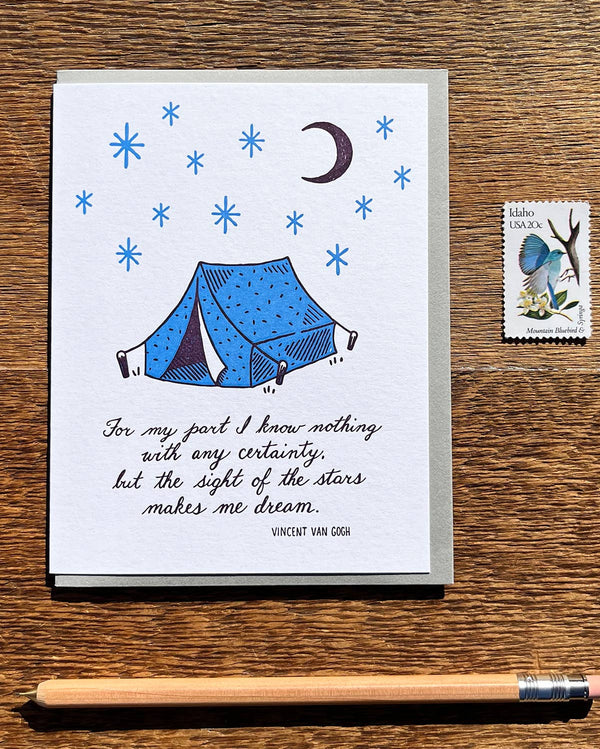 For my part I know nothing
with any certainty,
but the sight of the stars
makes me dream.
VINCENT VAN GOGH
Idaho
USA 20c
Mountain Bluebird &
Syringa